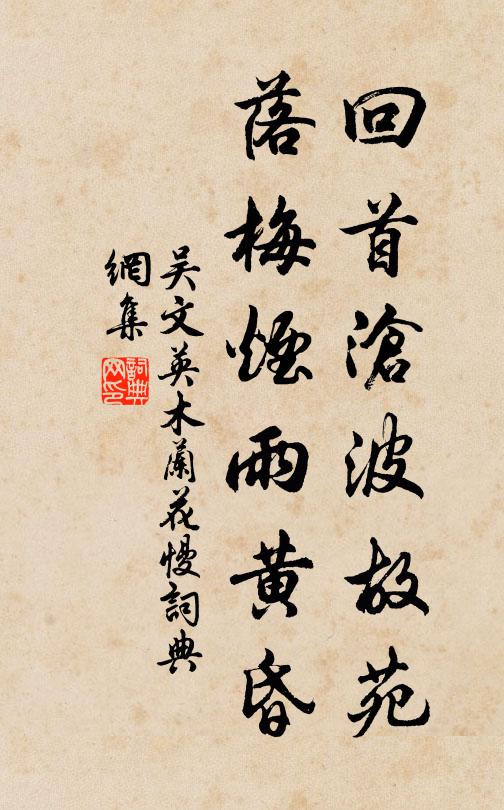 回首滄波故苑
落梅煙雨黄昏
吴文英木蘭花慢詞典
網集
詞典
网印